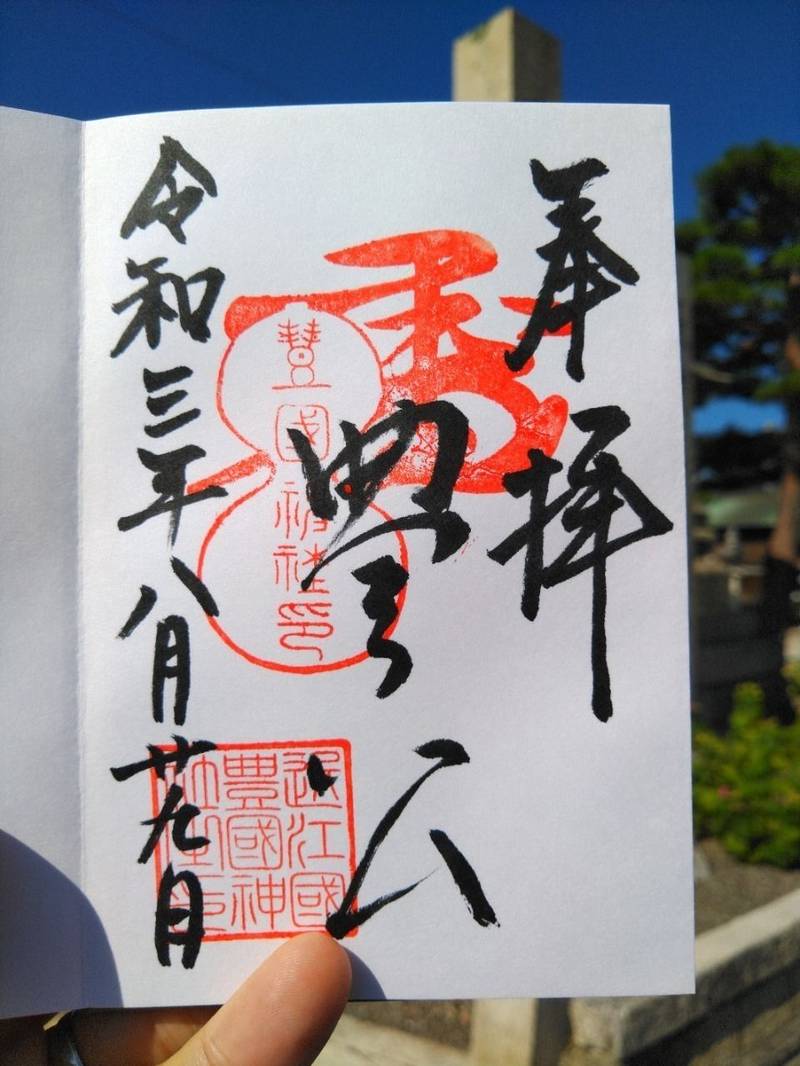 奉拝
秀
豊公
豐國神社印
近江國
豊國神
令和三年八月廿九日